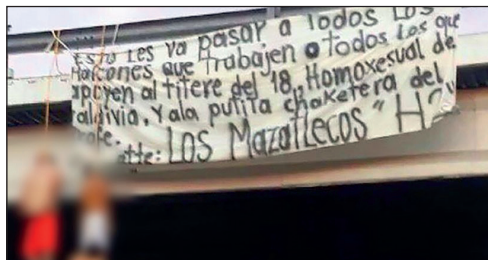 Esto Les va pasar a Todos Los
Halcones que Trabajen o Todos Los que
apoyen al titere del 18, Homoxesual de
aldivia, Y ala putita chaketera del
Atte: LOS MazaTLecos "H2"